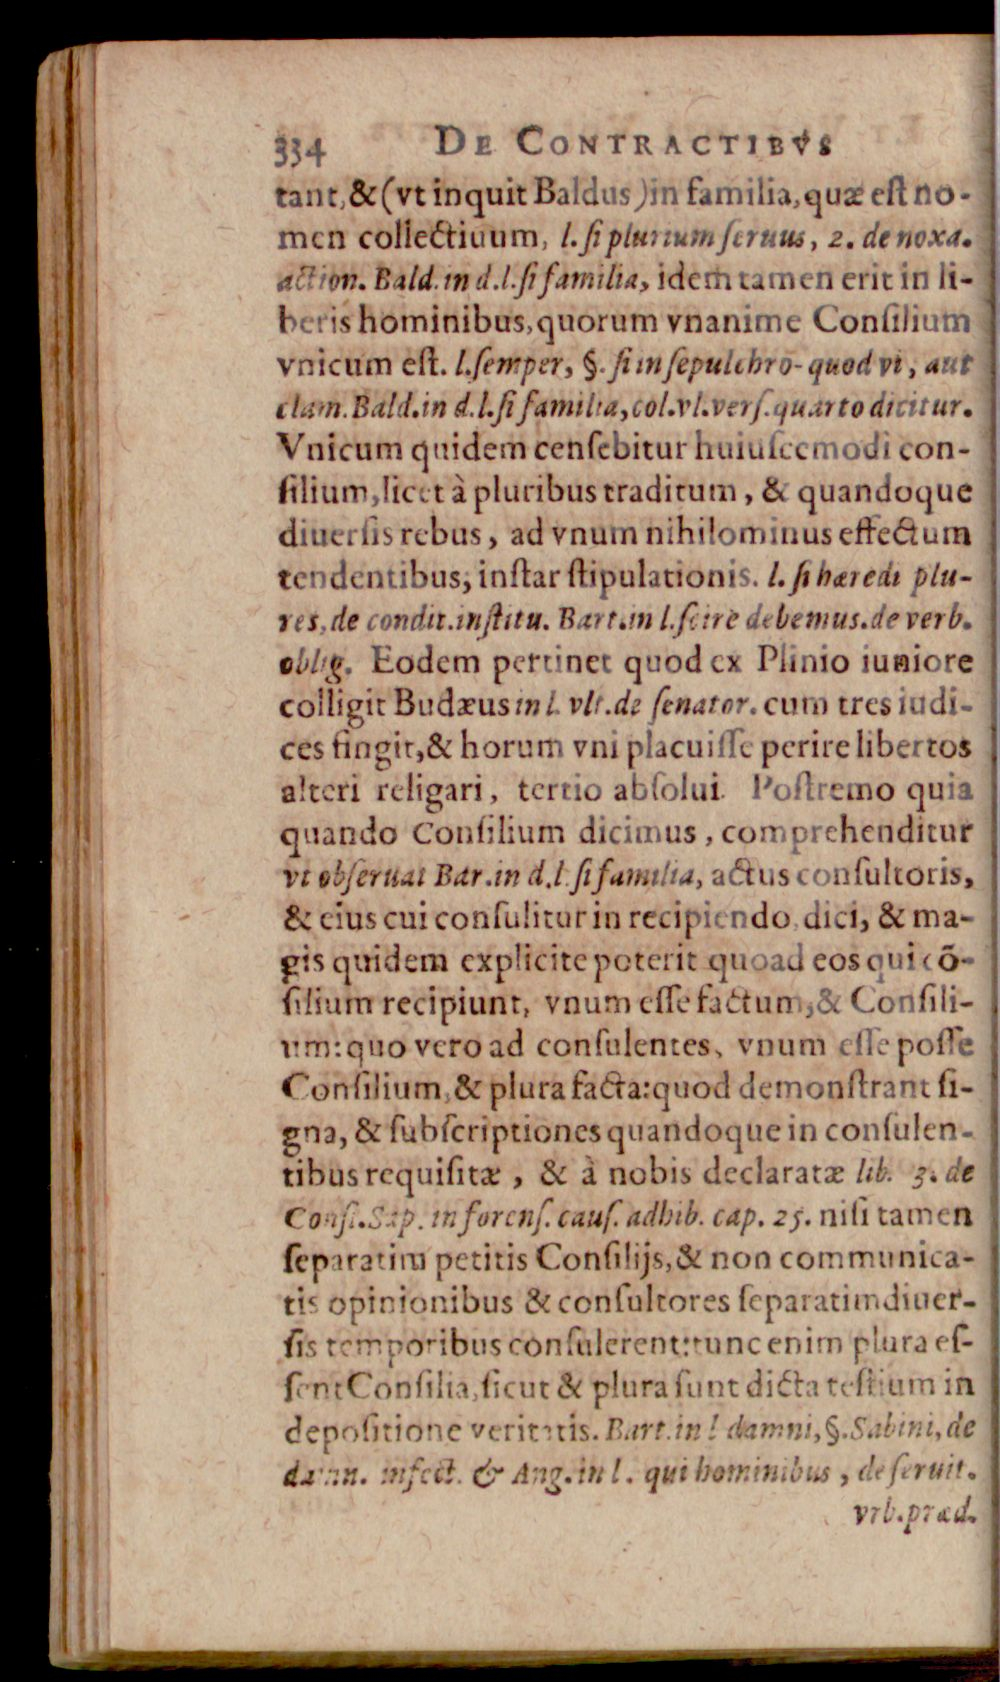 334 DE CONTRACTIBVS
tant, & (vt inquit Baldus) in familia, quæ est no-
men collectiuum, l. si plurium seruus, 2. de noxa.
action. Bald. in d.l. si familia, idem tamen erit in li-
beris hominibus, quorum vnanime Consilium
vnicum est. l. semper, §. si in sepulchro- quod vi, aut
clam. Bald. in d.l. si familia, col. vl. vers. quarto dicitur.
Vnicum quidem censebitur huiuscemodi con-
silium, licet à pluribus traditum, & quandoque
diuersis rebus, ad vnum nihilominus effectum
tendentibus, instar stipulationis. l. si hæredi plu-
res, de condit. institu. Bart. in l. scire debemus. de verb.
oblig. Eodem pertinet quod ex Plinio iuniore
colligit Budæus in l. vlt. de senator. cum tres iudi-
ces fingit, & horum vni placuisse perire libertos
alteri religari, tertio absolui. Postremo quia
quando Consilium dicimus, comprehenditur
vt obseruat Bar. in d.l. si familia, actus consultoris,
& eius cui consulitur in recipiendo, dici, & ma-
gis quidem explicite poterit quoad eos qui cõ-
silium recipiunt, vnum esse factum, & Consili-
um: quo vero ad consulentes, vnum esse posse
Consilium, & plura facta: quod demonstrant si-
gna, & subscriptiones quandoque in consulen-
tibus requisitæ, & à nobis declaratæ lib. 3. de
Consi. Sap. in forens. caus. adhib. cap. 25. nisi tamen
separatim petitis Consilijs, & non communica-
tis opinionibus & consultores separatim diuer-
sis temporibus consulerent: tunc enim plura es-
sent Consilia, sicut & plura sunt dicta testium in
depositione veritatis. Bart. in l damni, §. Sabini, de
damn. infect. & Ang. in l. qui hominibus, de seruit.
vrb. præd.